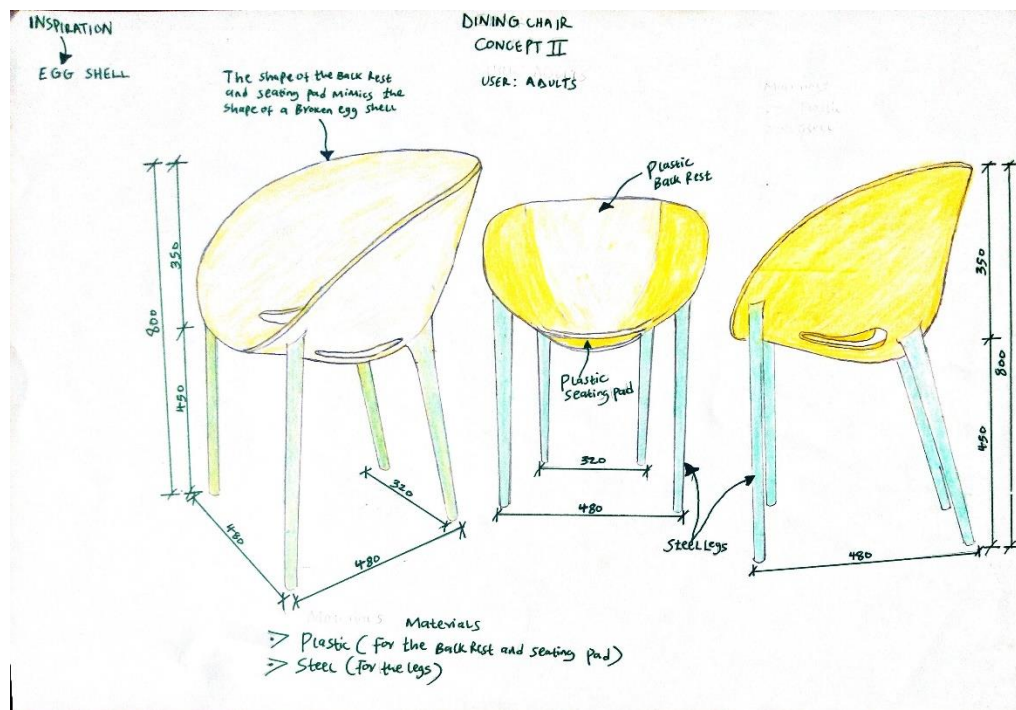 INSPIRATION
EGG SHELL
DINING CHAIR
CONCEPT II
USER: ADULTS
The shape of the Back Rest
and seating pad Mimics the
shape of a Broken egg shell
Plastic
Back Rest
Plastic
seating pad
Steel Legs
800
350
450
480
480
320
320
480
350
800
450
480
Materials
Plastic (for the Back Rest and seating pad)
Steel (for the legs)